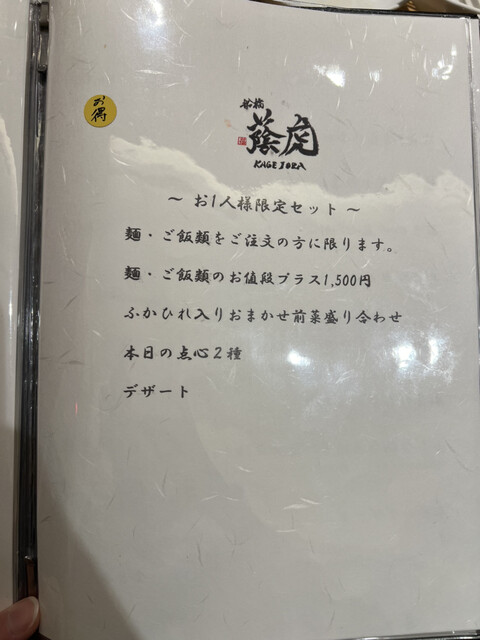 お得
船橋
蔭虎
KAGETORA
～ お1人様限定セット ～
麺・ご飯類をご注文の方に限ります。
麺・ご飯類のお値段プラス1,500円
ふかひれ入りおまかせ前菜盛り合わせ
本日の点心2種
デザート